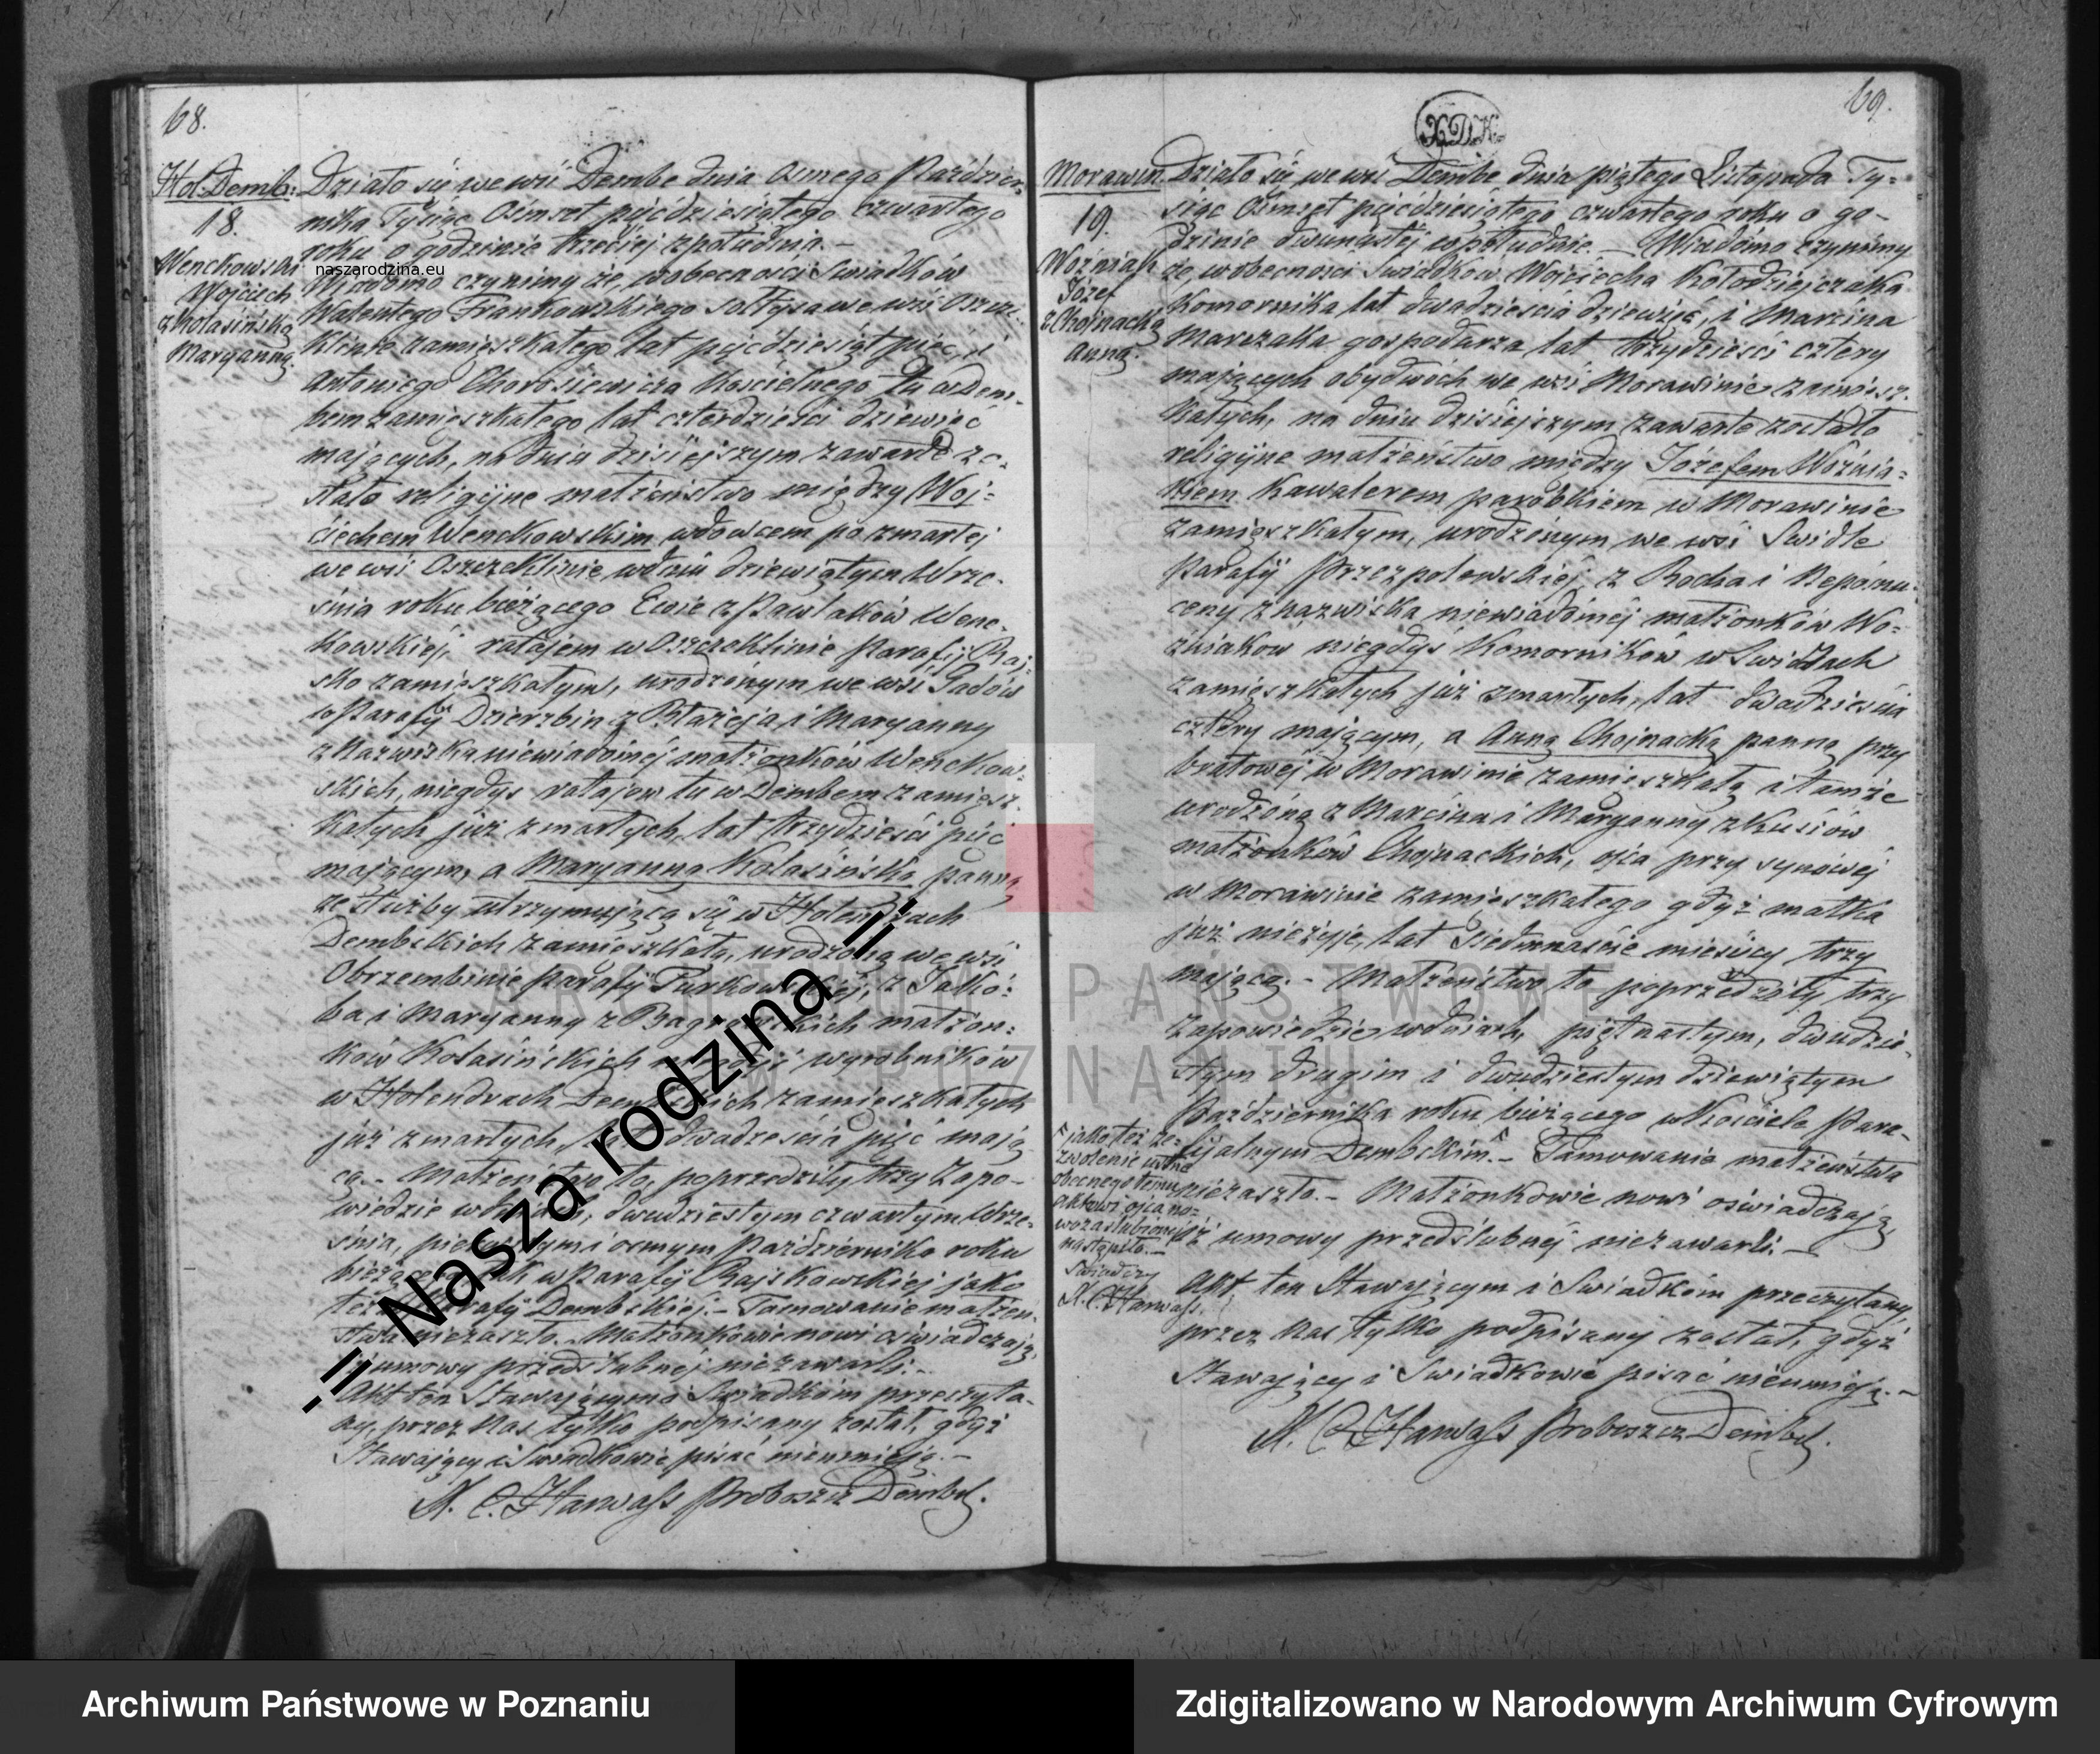 68.
Hol: Demb:
18.
Wenckowski
Wojciech
z Kolasińską
Maryanną.
Działo się we wsi Dembe dnia Osmego Paździer-
nika Tysiąc Ośmset pięćdziesiątego czwartego
roku o godzinie trzeciej z południa. –
naszarodzina.eu
Wiadomo czynimy że, w obecności Swiadków
Walentego Frankowskiego sołtysa we wsi Oszcze-
klinie zamieszkałego lat pięćdziesiąt pięć, i
Antoniego Chorosiewicza Kościelnego tu w Dem-
bem zamieszkałego lat czterdzieści dziewięć
mających, na dniu dzisiejszym zawarte zo-
stało religijne małżeństwo między Woj-
ciechem Wenckowskim wdowcem po zmarłej
we wsi Oszczeklinie w dniu dziewiątym Wrze-
śnia roku bieżącego Ewie z Pawlaków Wenc-
kowskiej, ratajem w Oszczeklinie Parafij Raj-
sko zamieszkałym, urodzonym we wsi Gadów
w Parafij Dzierzbin z Błażeja i Maryanny
z Nazwiska niewiadomej małżonków Wenckow-
skich, niegdys ratajow tu w Dembem zamiesz-
kałych już zmarłych, lat trzydzieści pięć
mającym, a Maryanną Kolasińską panną
ze służby utrzymującą się w Holendrach
Dembskich zamieszkałą, urodzoną we wsi
Obrzembinie parafij Turkowskiej, z Jakó-
ba i Maryanny z małżon-
ków Kolasińskich wyrobników
w Holendrach zamieszkałych
już zmarłych, dwadzieścia pięć mają
cą. – Małżeństwo to, poprzedziły trzy Zapo-
wiedzie w dniach, dwudziestym czwartym Wrze-
śnia, i osmym Października roku
w Parafij Rajskowskiej jako
też Dembskiej. – Tamowanie małżeń-
stwa niezaszło. Małżonkowie nowi oświadczają
iż umowy przedślubnej niezawarli. –
Akt ten Stawającym i Swiadkom przeczyta-
ny, przez Nas tylko podpisany został, gdyż
Stawający i Swiadkowie pisać nieumieją. –
N. C. Harwass Proboszcz Dembs.
69.
X.D.K.
Morawin.
19.
Woźniak
Józef
z Chojnacką
Anną.
Działo się we wsi Dembe dnia piątego Listopada Ty-
siąc Ośmset pięćdziesiątego czwartego roku o go-
dzinie dwunastej w południe. – Wiadomo czynimy
że, w obecności Swiadków Wojciecha Kołodziejczaka
Komornika lat dwadzieścia dziewięć, i Marcina
Marczaka gospodarza lat trzydzieści cztery
mających obydwóch we wsi Morawinie zamiesz-
kałych, na dniu dzisiejszym zawarte zostało
religijne małżeństwo między Józefem Woźnia-
kiem Kawalerem parobkiem w Morawinie
zamieszkałym, urodzonym we wsi Swidle
Parafij Przespolewskiej, z Rocha i Nepomu-
ceny z nazwiska niewiadomej małżonków Wo-
źniaków niegdyś Komorników w Swidlach
zamieszkałych już zmarłych, lat dwadzieścia
cztery mającym, a Anną Chojnacką panną przy
bratowej w Morawinie zamieszkałą i tamże
urodzoną z Marcina i Maryanny z Kusiów
małżonków Chojnackich, ojca przy synowej
w Morawinie zamieszkałego gdyż matka
już nieżyje, lat Siedmnaście miesięcy trzy
mającą. – Małżeństwo to poprzedziły trzy
zapowiedzie w dniach, piętnastym, dwudzie-
stym drugim i dwudziestym dziewiątym
Października roku bieżącego w Kościele Para-
fijalnym Dembskim. – Tamowania małżeństwa
niezaszło. – Małżonkowie nowi oświadczają,
iż umowy przedślubnej niezawarli. –
jako też ze-
zwolenie ustne
obecnego temu
aktowi ojca no-
wozaślubionej
nastąpiło. –
Swiadczy
N. C. Harwass.
Akt ten Stawającym i Swiadkom przeczytany
przez Nas tylko podpisany został, gdyż
Stawający i Swiadkowie pisać nieumieją. –
N. C. Harwass Proboszcz Dembs.
.:: Nasza rodzina ::.
ARCHIWUM PAŃSTWOWE
W POZNANIU
Archiwum Państwowe w Poznaniu
Zdigitalizowano w Narodowym Archiwum Cyfrowym